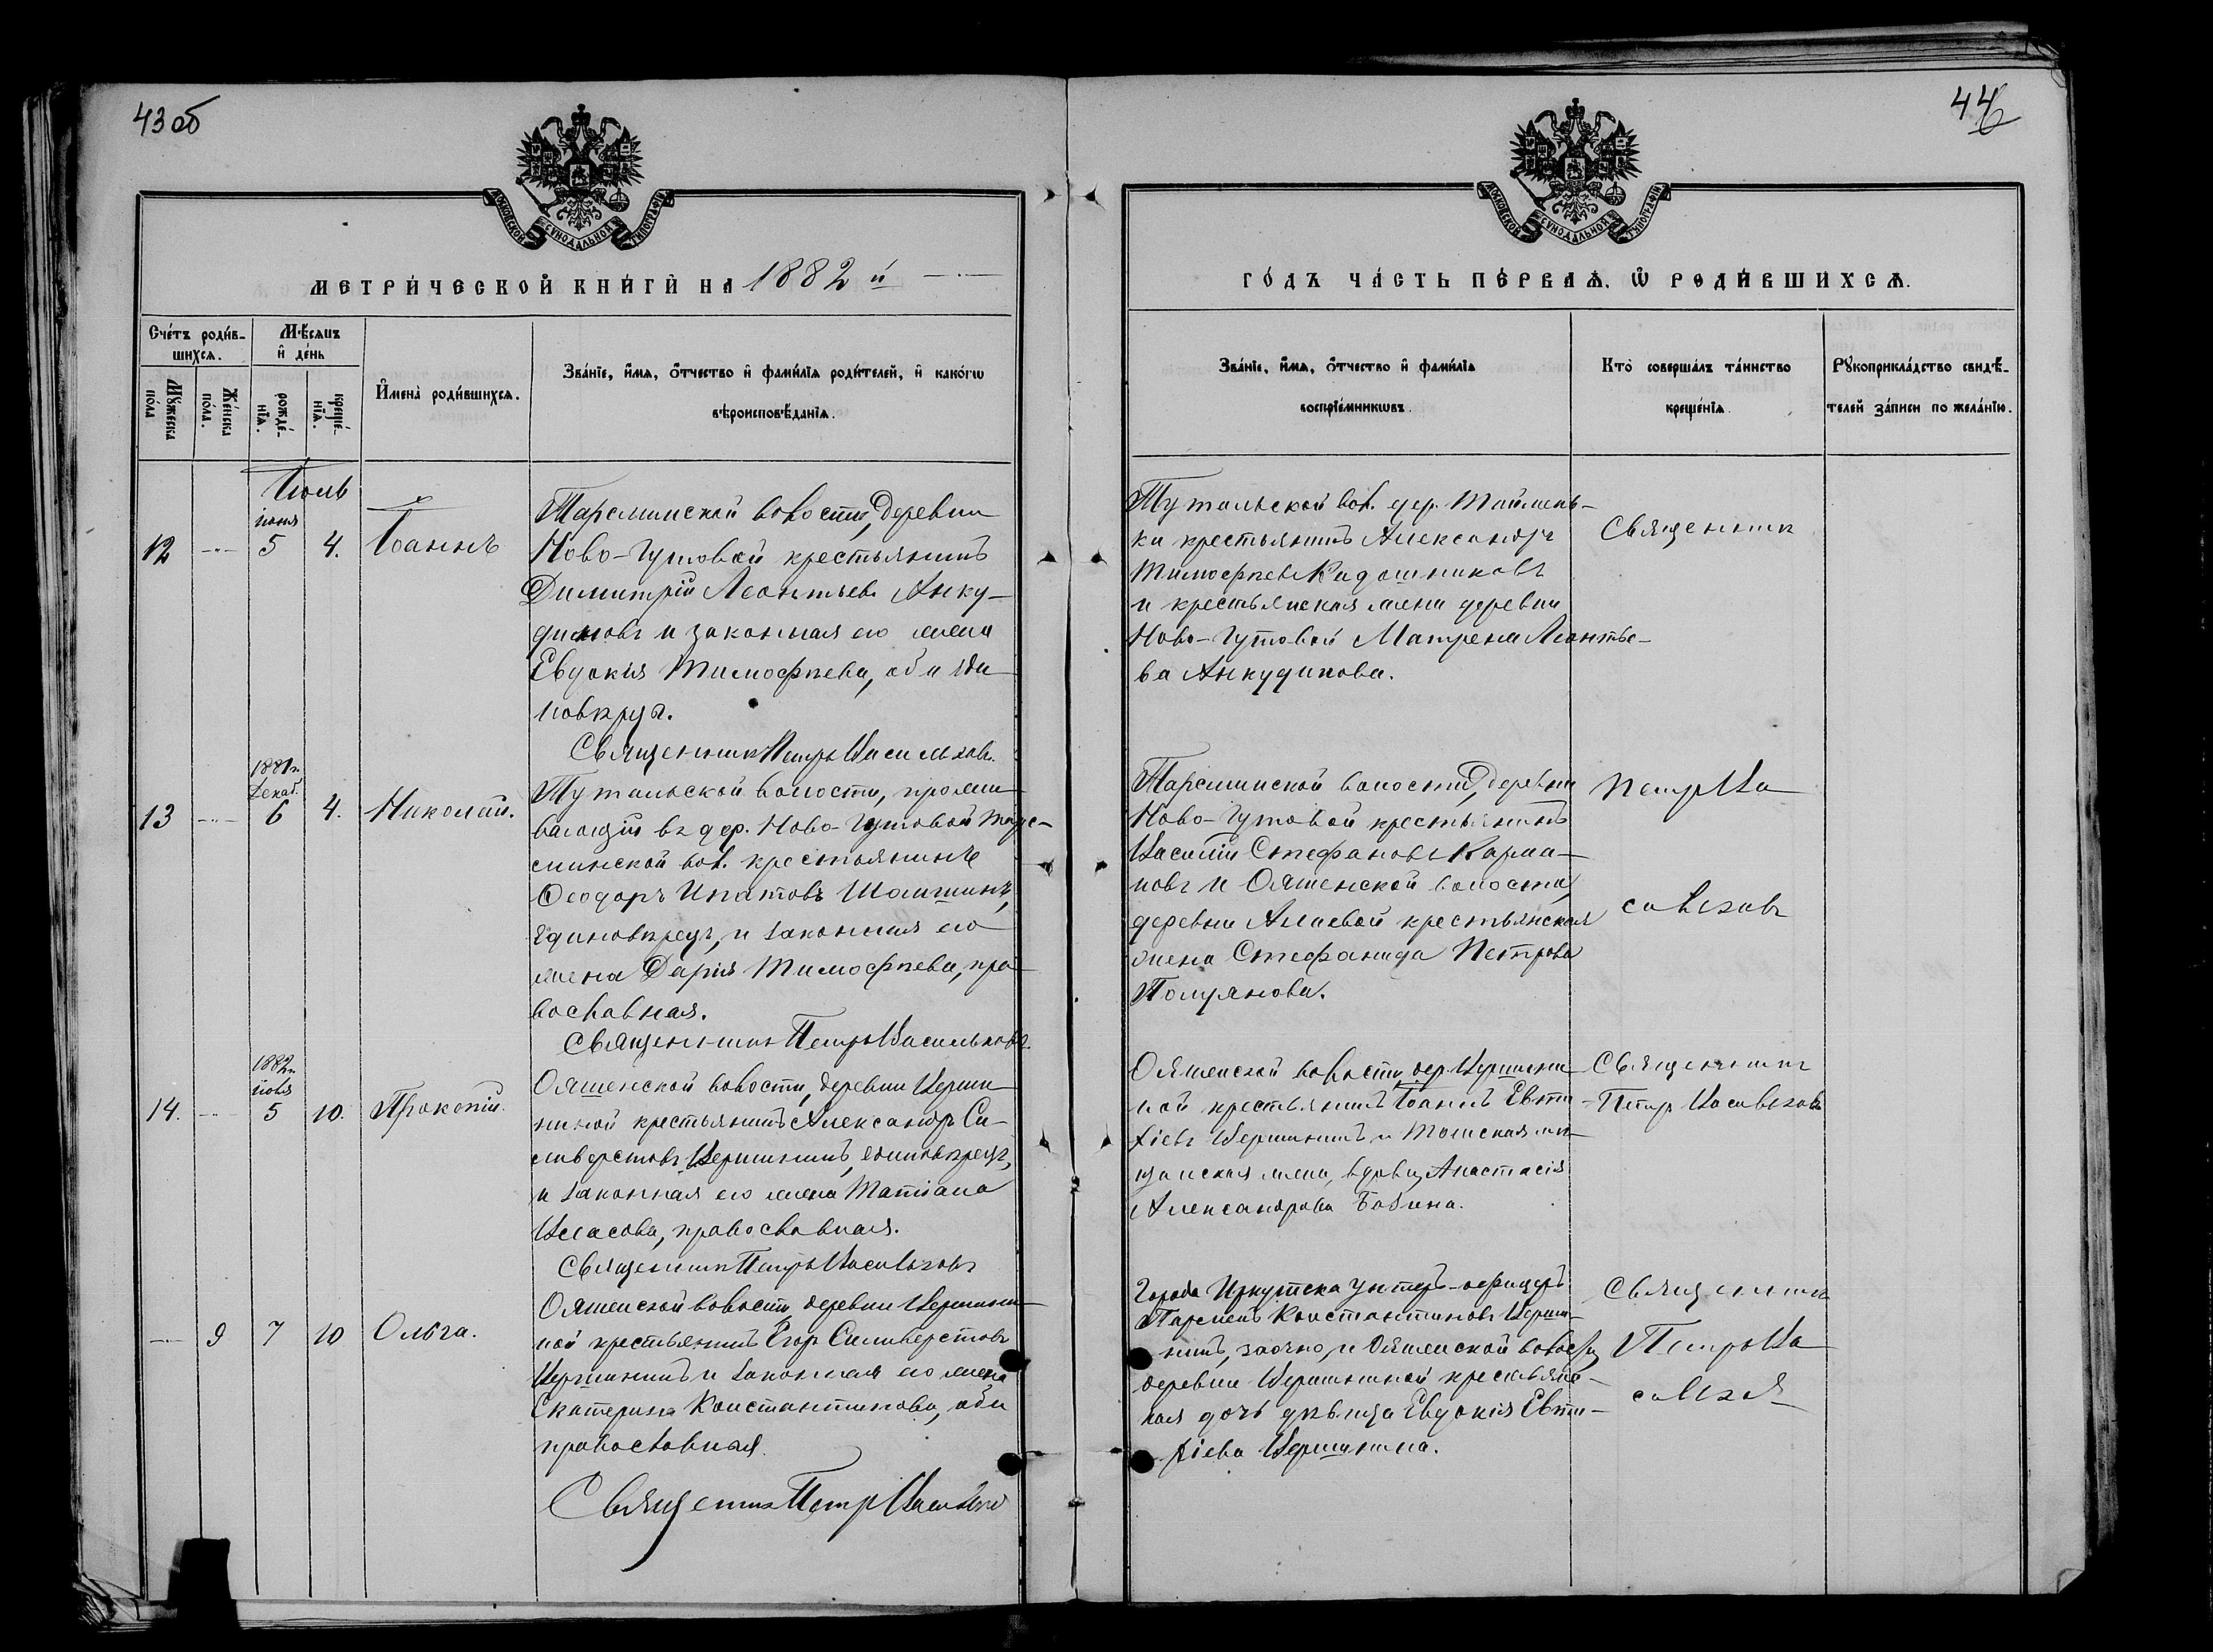 43 об
44
МОСКОВСКОЙ СѴНОДАЛЬНОЙ ТИПОГРАФІИ
МОСКОВСКОЙ СѴНОДАЛЬНОЙ ТИПОГРАФІИ
МЕТРИ́ЧЕСКОЙ КНИ́ГИ НА 1882 й
ГО́ДЪ ЧА́СТЬ ПЕ́РВАѦ, Ѽ РОДИ́ВШИХСѦ.
Сче́тъ роди́в-
шихсѧ.
Мꙋ́жеска по́ла
Же́нска по́ла.
Мѣ́сѧцъ
и҆ де́нь
рожде́-
нїѧ.
креще́-
нїѧ.
И҆мена̀ роди́вшихсѧ.
Зва́нїе, и҆́мѧ, ѻ҆́тчество и҆ фами́лїѧ роди́телей, и҆ како́гѡ
вѣроисповѣ́данїѧ.
Зва́нїе, и҆́мѧ, ѻ҆́тчество и҆ фами́лїѧ
воспрїе́мникѡвъ.
Кто̀ соверша́лъ та́инство
креще́нїѧ.
Рꙋкоприкла́дство свидѣ́-
телей за́писи по жела́нїю.
Іюль
12
іюня
5
4.
Іоаннъ
Тарсминской волости, деревни
Ново-Гутовой крестьянинъ
Димитрій Леонтьевъ Анку-
диновъ и законная его жена
Евдокія Тимофѣева, оба еди
новѣрцы.
Священникъ Петръ Васильковъ.
Тутальской вол. дер. Таймень-
ки крестьянинъ Александръ
Тимофѣевъ Кадошниковъ
и крестьянская жена деревни
Ново-Гутовой Матрена Леонтье-
ва Анкудинова.
Священникъ
13
1881 г.
Декаб.
6
4.
Николай.
Тутальской волости, прожи
вающій въ дер. Ново-Гутовой Тарс-
минской вол. крестьянинъ
Ѳеодоръ Ипатовъ
единовѣрецъ, и законная его
жена Дарія Тимофѣева, пра
вославная.
Священникъ Петръ Васильковъ.
Тарсминской волости, деревни
Ново-Гутовой крестьянинъ
Василій Стефановъ Карма-
новъ и Ояшенской волости,
деревни Алаевой крестьянская
жена Стефанида Петрова
Петръ Ва
сильковъ
14.
1882 г.
іюля
5
10.
Прокопій.
Ояшенской волости, деревни Верши
ниной крестьянинъ Александръ Си-
ливерстовъ Вершининъ, единовѣрецъ,
и законная его жена Татіана
Власова, православная.
Священникъ Петръ Васильковъ
Ояшенской волости дер. Верши
ной крестьянинъ Іоаннъ Евти
хіевъ Вершининъ и Томская мѣ
щанская жена, вдова, Анастасія
Александрова Бабина.
Священникъ
Петръ Васильковъ
9
7
10
Ольга.
Ояшенской волости, деревни Вершини
ной крестьянинъ Егоръ Силиверстовъ
Вершининъ и законная его жена
Екатерина Константинова, оба
православная.
Священникъ Петръ Васильковъ
Города Иркутска унтеръ-офицеръ
Парменъ Константиновъ Верши-
нинъ, заочно, и Ояшенской волости,
деревни Вершининой крестьянс-
кая дочь дѣвица Евдокія Евти-
хіева Вершинина.
Священникъ
Петръ Ва
сильков